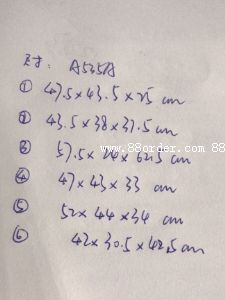 尺寸: A535A
① 47.5×43.5×25 cm
② 43.5×38×37.5 cm
③ 57.5× ×62.5 cm
④ 47×43×33 cm
⑤ 52×44×34 cm
⑥ 42×30.5×42.5cm
www.88order.com